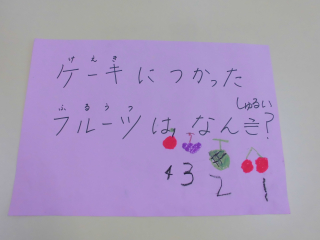 けえき
ケーキにつかった
ふるうつ しゅるい
フルーツは、なんき?
4 3 2 1